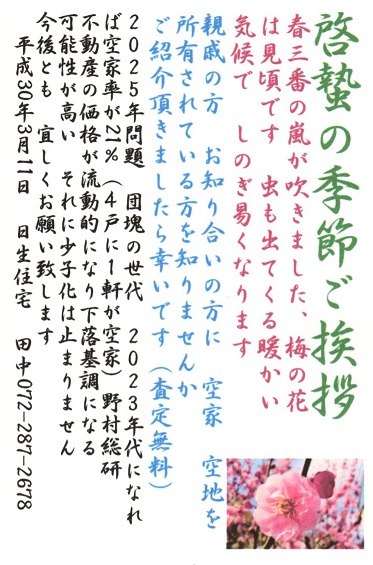 啓蟄の季節ご挨拶
春三番の嵐が吹きました、梅の花
は見頃です 虫も出てくる暖かい
気候で しのぎ易くなります
親戚の方 お知り合いの方に 空家 空地を
所有されている方を知りませんか
ご紹介頂きましたら幸いです（査定無料）
2025年問題 団塊の世代 2023年代になれ
ば空家率が21%（4戸に1軒が空家）野村総研
不動産の価格が流動的になり下落基調になる
可能性が高い それに少子化は止まりません
今後とも 宜しくお願い致します
平成30年3月11日 日生住宅 田中072-287-2678